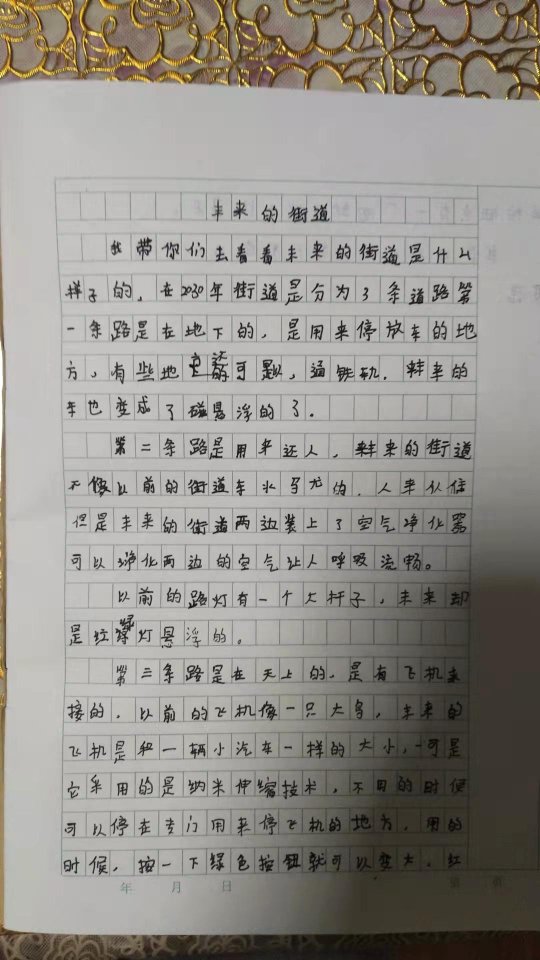 未来的街道
我带你们去看看未来的街道是什么
样子的，在2030年街道是分为了条道路第
一条路是在地下的，是用来停放车的地
方，有些地方还可以，通铁轨，未来的
车也变成了磁悬浮的了。
第二条路是用来还人，未来的街道
不像以前的街道车水马龙的，人来
但是未来的街道两边装上了空气净化器
可以净化两边的空气让人呼吸流畅。
以前的路灯有一个大杆子，未来却
是红绿灯悬浮的。
第三条路是在天上的，是有飞机来
接的，以前的飞机像一只大鸟，未来的
飞机是和一辆小汽车一样的大小，可是
它采用的是纳米伸缩技术，不用的时候
可以停在专门用来停飞机的地方，用的
时候，按一下绿色按钮就可以变大，红
年 月 日
第 页